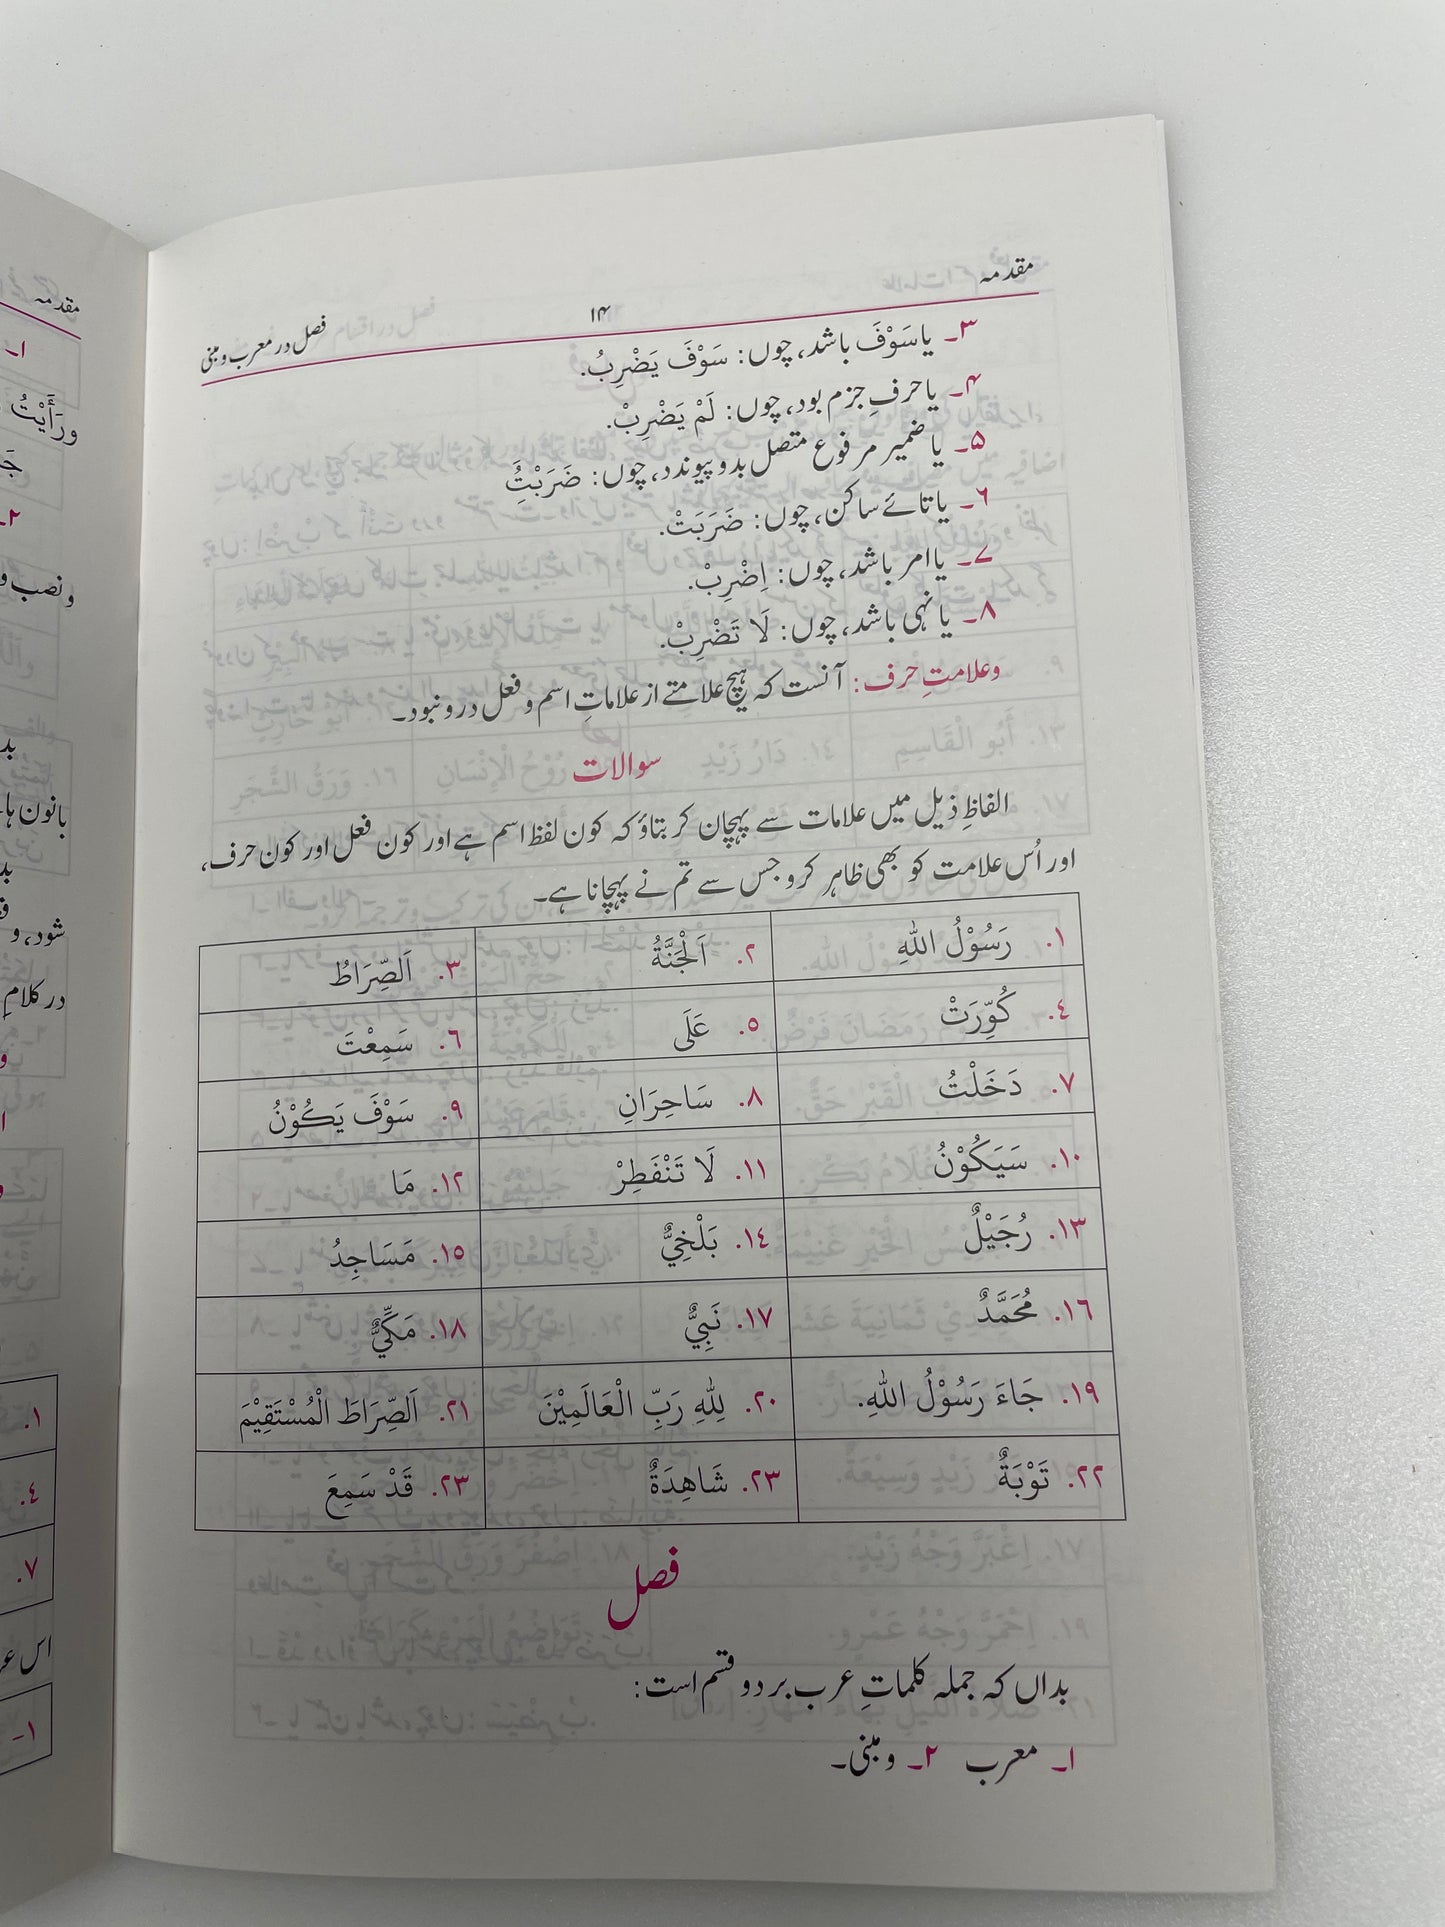 مقدمہ ۱۴ فصل در معرب و مبنی
۳۔ یا سَوْفَ باشد، چوں: سَوْفَ يَضْرِبُ.
۴۔ یا حرفِ جزم بود، چوں: لَمْ يَضْرِبْ.
۵۔ یا ضمیر مرفوع متصل بدو پیوندد، چوں: ضَرَبْتَُِ
۶۔ یا تائے ساکن، چوں: ضَرَبَتْ.
۷۔ یا امر باشد، چوں: اِضْرِبْ.
۸۔ یا نہی باشد، چوں: لَا تَضْرِبْ.
وعلامتِ حرف: آنست کہ ہیچ علامتے از علاماتِ اسم و فعل در و نبود۔
سوالات
الفاظِ ذیل میں علامات سے پہچان کر بتاؤ کہ کون لفظ اسم ہے اور کون فعل اور کون حرف،
اور اُس علامت کو بھی ظاہر کرو جس سے تم نے پہچانا ہے۔
١. رَسُوْلُ اللهِ ٢. اَلْجَنَّةُ ٣. اَلصِّرَاطُ
٤. كُوِّرَتْ ٥. عَلَى ٦. سَمِعْتَ
٧. دَخَلْتُ ٨. سَاحِرَانِ ٩. سَوْفَ يَكُوْنُ
١٠. سَيَكُوْنُ ١١. لَا تَنْفَطِرْ ١٢. مَا
١٣. رُجَيْلٌ ١٤. بَلْخِيٌّ ١٥. مَسَاجِدُ
١٦. مُحَمَّدٌ ١٧. نَبِيٌّ ١٨. مَكِّيٌّ
١٩. جَاءَ رَسُوْلُ اللهِ. ٢٠. لِلّٰهِ رَبِّ الْعَالَمِيْنَ ٢١. اَلصِّرَاطَ الْمُسْتَقِيْمَ
٢٢. تَوْبَةٌ ٢٣. شَاهِدَةٌ ٢٣. قَدْ سَمِعَ
فصل
بداں کہ جملہ کلماتِ عرب بر دو قسم است:
۱۔ معرب ۲۔ و مبنی۔
مقدمہ
۱۔
ورَأَيْتُ
۲۔
و نصب و
بانون ہا
شود، و
در کلامِ
١.
٤.
٧.
اس
۱۔